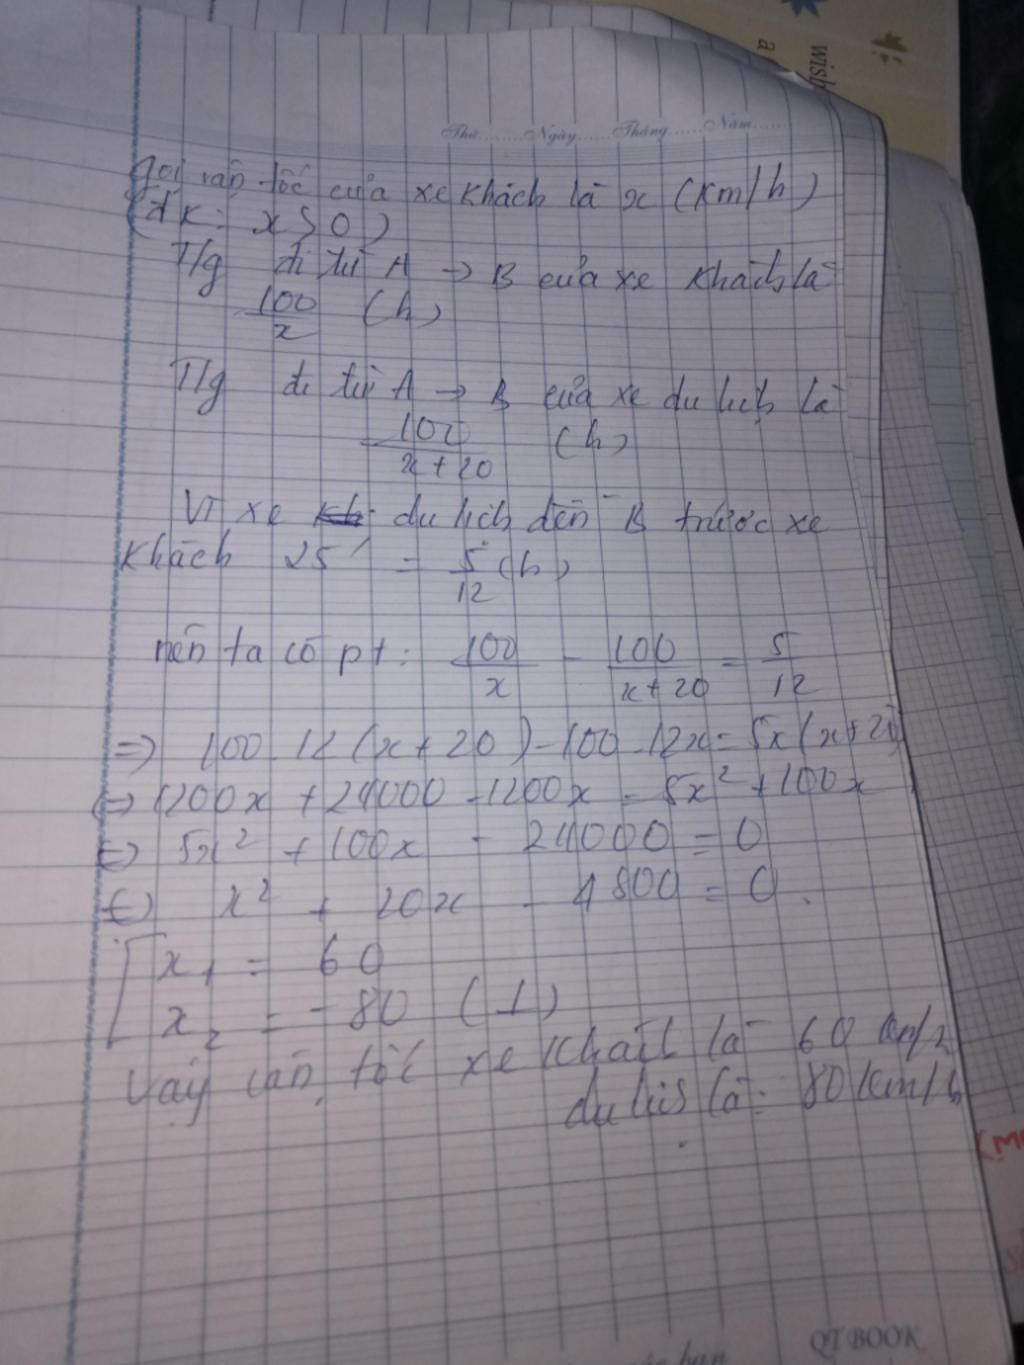 wish
a
Thứ......Ngày......Tháng......Năm......
Gọi vận tốc của xe khách là x (km/h)
(đk: x > 0)
T/g đi từ A → B của xe khách là
100/x (h)
T/g đi từ A → B của xe du lịch là
100/(x + 20) (h)
Vì xe du lịch đến B trước xe
khách 25' = 5/12 (h)
nên ta có pt: 100/x - 100/(x + 20) = 5/12
=> 100.12(x + 20) - 100.12x = 5x(x + 20)
<=> 1200x + 24000 - 1200x = 5x² + 100x
<=> 5x² + 100x - 24000 = 0
<=> x² + 20x - 4800 = 0.
[ x₁ = 60
x₂ = -80 (L)
Vậy vận tốc xe khách là 60 km/h
du lịs là: 80 km/h
QT BOOK